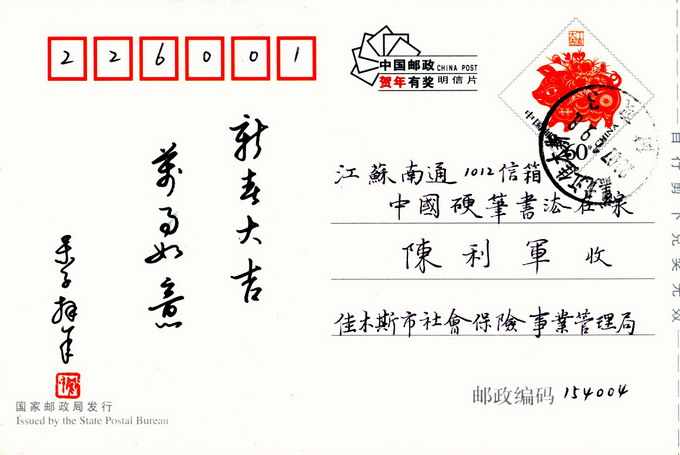 226001
中国邮政 CHINA POST
贺年有奖 明信片
中国邮政 CHINA
江蘇南通1012信箱
中國硬筆書法在線
陳利軍 收
佳木斯市社會保險事業管理局
邮政编码 154004
新春大吉
萬事如意
国家邮政局发行
Issued by the State Postal Bureau
自行剪下兑奖无效